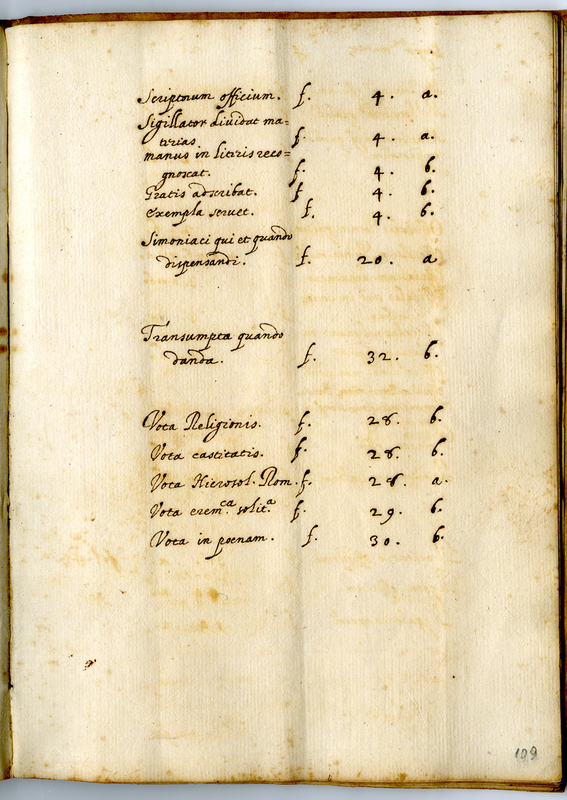 Scriptorum officium. f. 4. a.
Sigillator diuidat ma=
terias f. 4. a.
manus in literis reco=
gnoscat. f. 4. b.
Gratis adscribat. f 4. b.
exempla seruet. f. 4. b.
Simoniaci qui et quando
dispensandi. f. 20. a
Transumpta quando
danda. f. 32. b.
Vota Religionis. f. 28. b.
Vota castitatis. f. 28. b.
Vota Hierosol. Rom. f. 28. a.
Vota erem.ca solit.a f. 29. b.
Vota in poenam. f. 30. b.
109